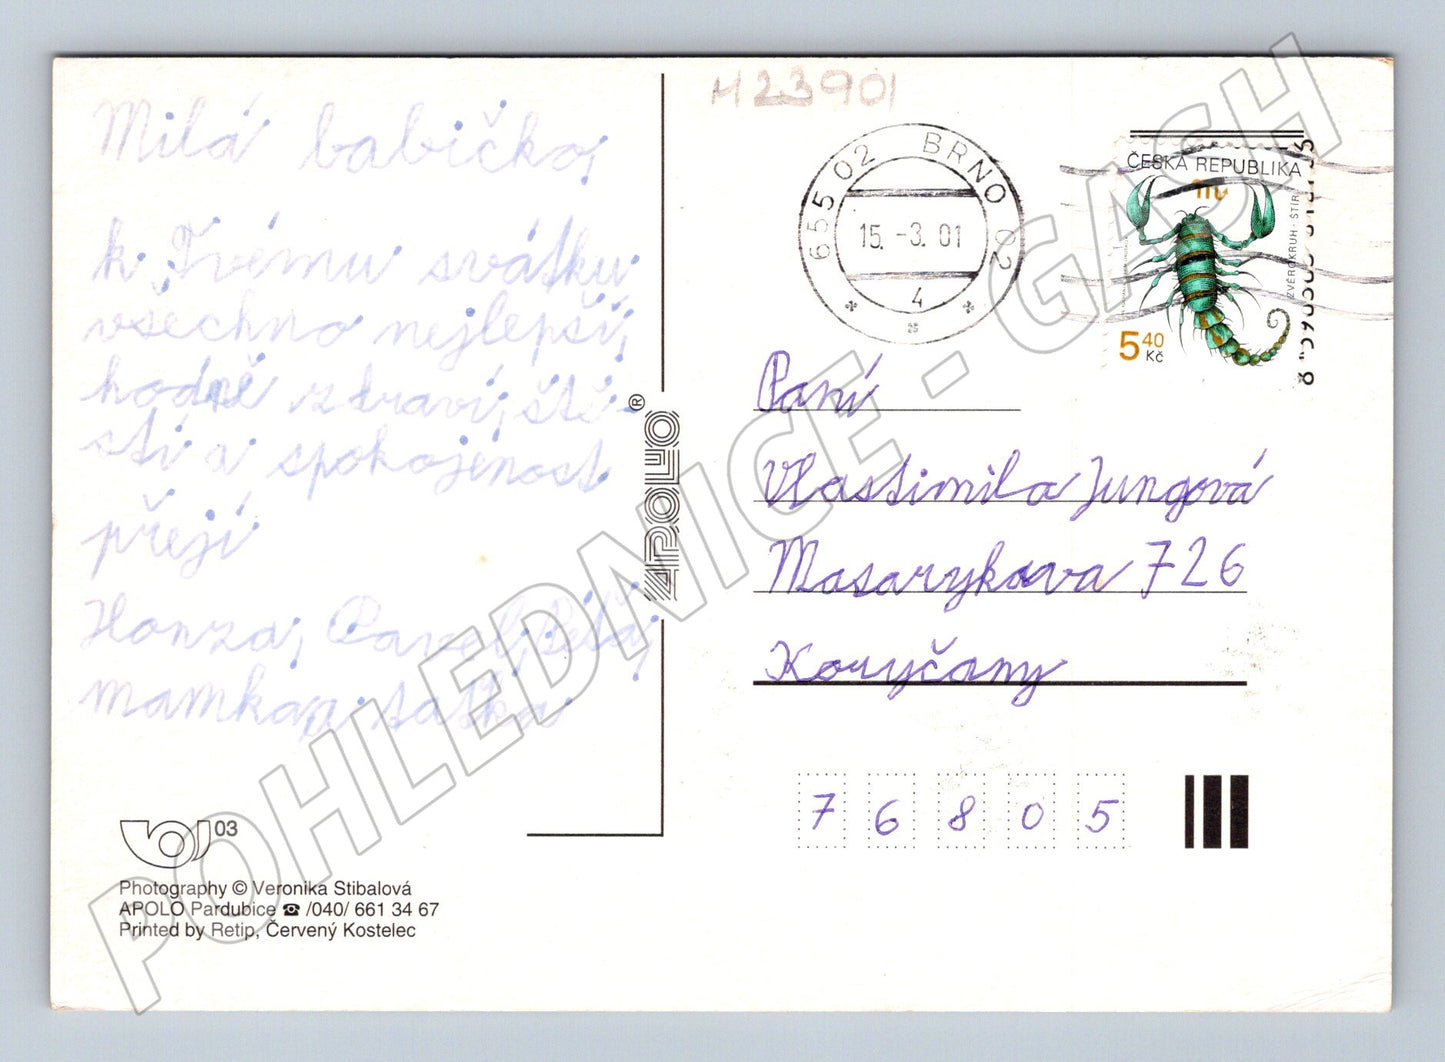 Milá babičko,
k Tvému svátku
všechno nejlepší,
hodně zdraví, ště-
stí a spokojenost
přejí
Honza, Pavel, Péťa,
mamka a taťka
03
Photography © Veronika Stibalová
APOLO Pardubice ☎ /040/ 661 34 67
Printed by Retip, Červený Kostelec
APOLO®
M23901
655 02 BRNO 02
15. -3. 01
4
ČESKÁ REPUBLIKA
ZVĚROKRUH - ŠTÍR
5 40 Kč
Paní
Vlastimila Jungová
Masarykova 726
Koryčany
76805
POHLEDNICE - GASH